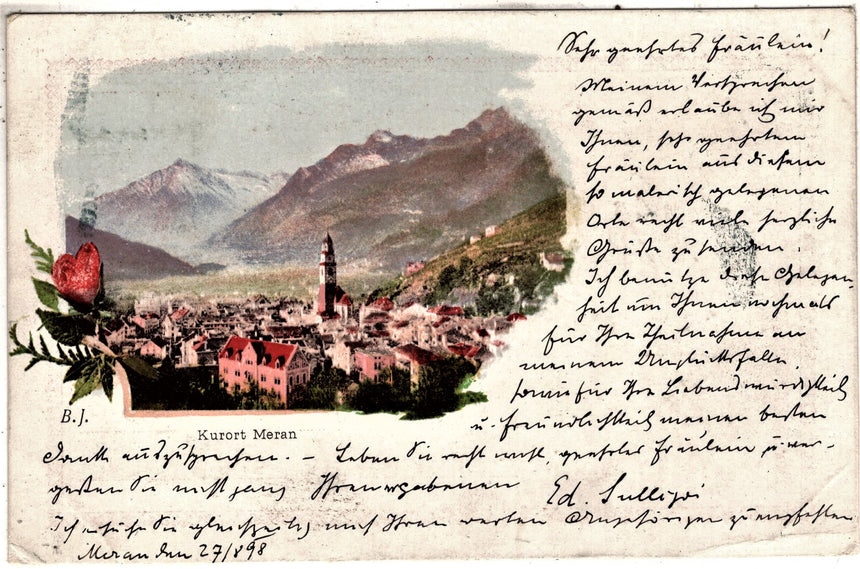 Sehr geehrtes Fräulein!
Meinem Versprechen
gemäß erlaube ich mir
Ihnen, sehr geehrtem
Fräulein aus diesem
so malerisch gelegenen
Orte recht viele herzliche
Grüße zu senden.
Ich benutze diese Gelegen-
heit um Ihnen nochmals
für Ihre Theilnahme an
meinem Unglücksfalle,
sowie für Ihre Liebenswürdigkeit
u. Freundlichkeit meinen besten
B.J.
Kurort Meran
Dank auszusprechen. – Leben Sie recht wohl, geehrtes Fräulein u. ver-
gessen Sie nicht ganz Ihren ergebenen
Ed.
Ich ersuche Sie gleichzeitig mich Ihren werten Angehörigen zu empfehlen
Meran den 27/8 98